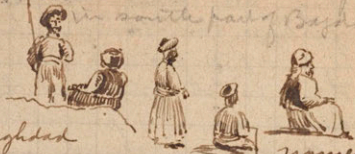 in south part of Bagd
ghdad